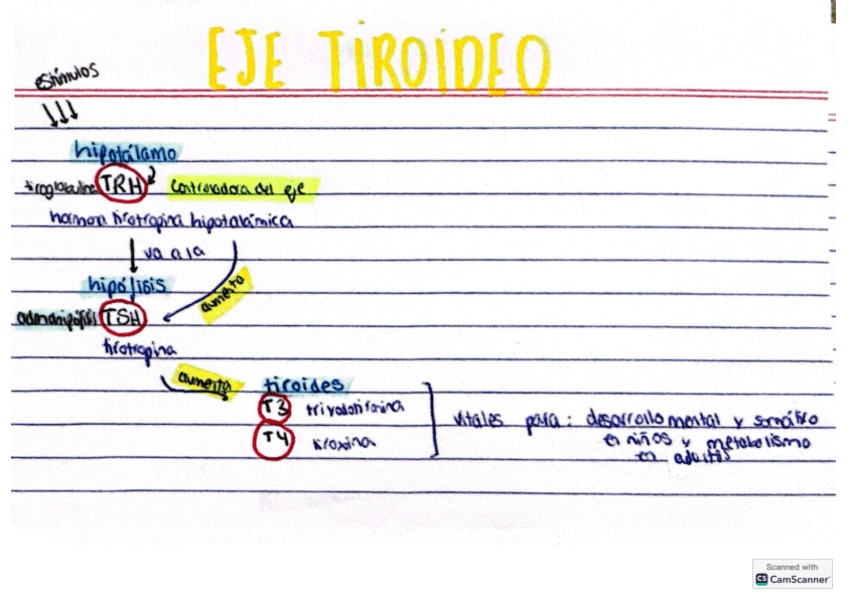 EJE TIROIDEO
estímulos
hipotálamo
TRH controladora del eje
hormona tirotropina hipotalámica
va a la
aumenta
hipófisis
adenohipófisis TSH
tirotropina
aumenta tiroides
T3 triyodotironina
T4 tiroxina
vitales para: desarrollo mental y somático
en niños y metabolismo
en adultos
Scanned with
CS CamScanner